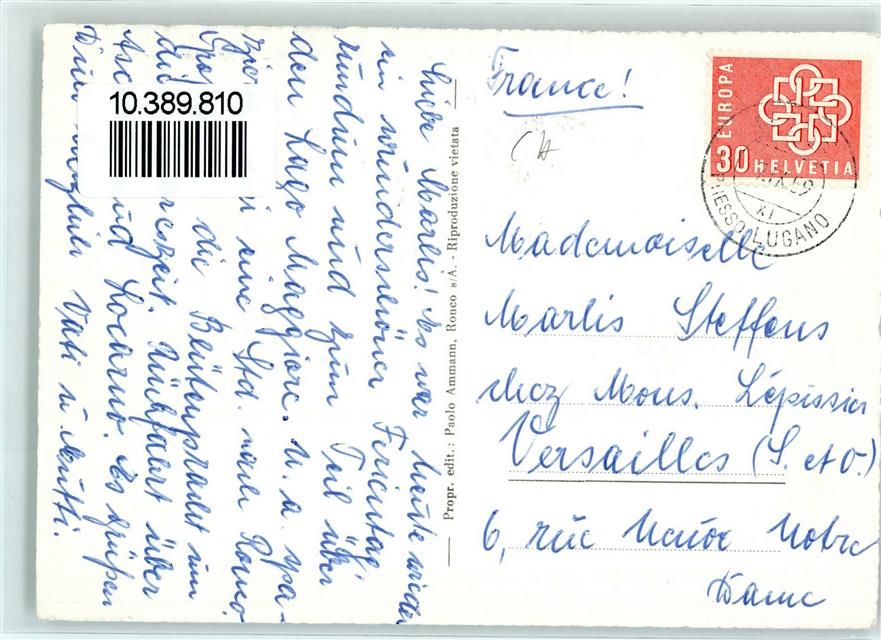 Liebe Marlis! Es war heute wieder
ein wunderschöner Ferientag
rundum und zum Teil über
den Lago Maggiore. U. a. spa-
zier i eine Std. nach Ronco.
die Blütenpracht um
die reszeit. Rückfahrt über
Asc nd Locarno. Es grüßen
Dich Vati u Mutti.
10.389.810
Propr. edit.: Paolo Ammann, Ronco s/A. - Riproduzione vietata
France!
EUROPA
30 HELVETIA
LUGANO
Mademoiselle
Marlis Steffens
chez Mons. Lépissier
Versailles (S. et O.)
6, rue Notre
Dame